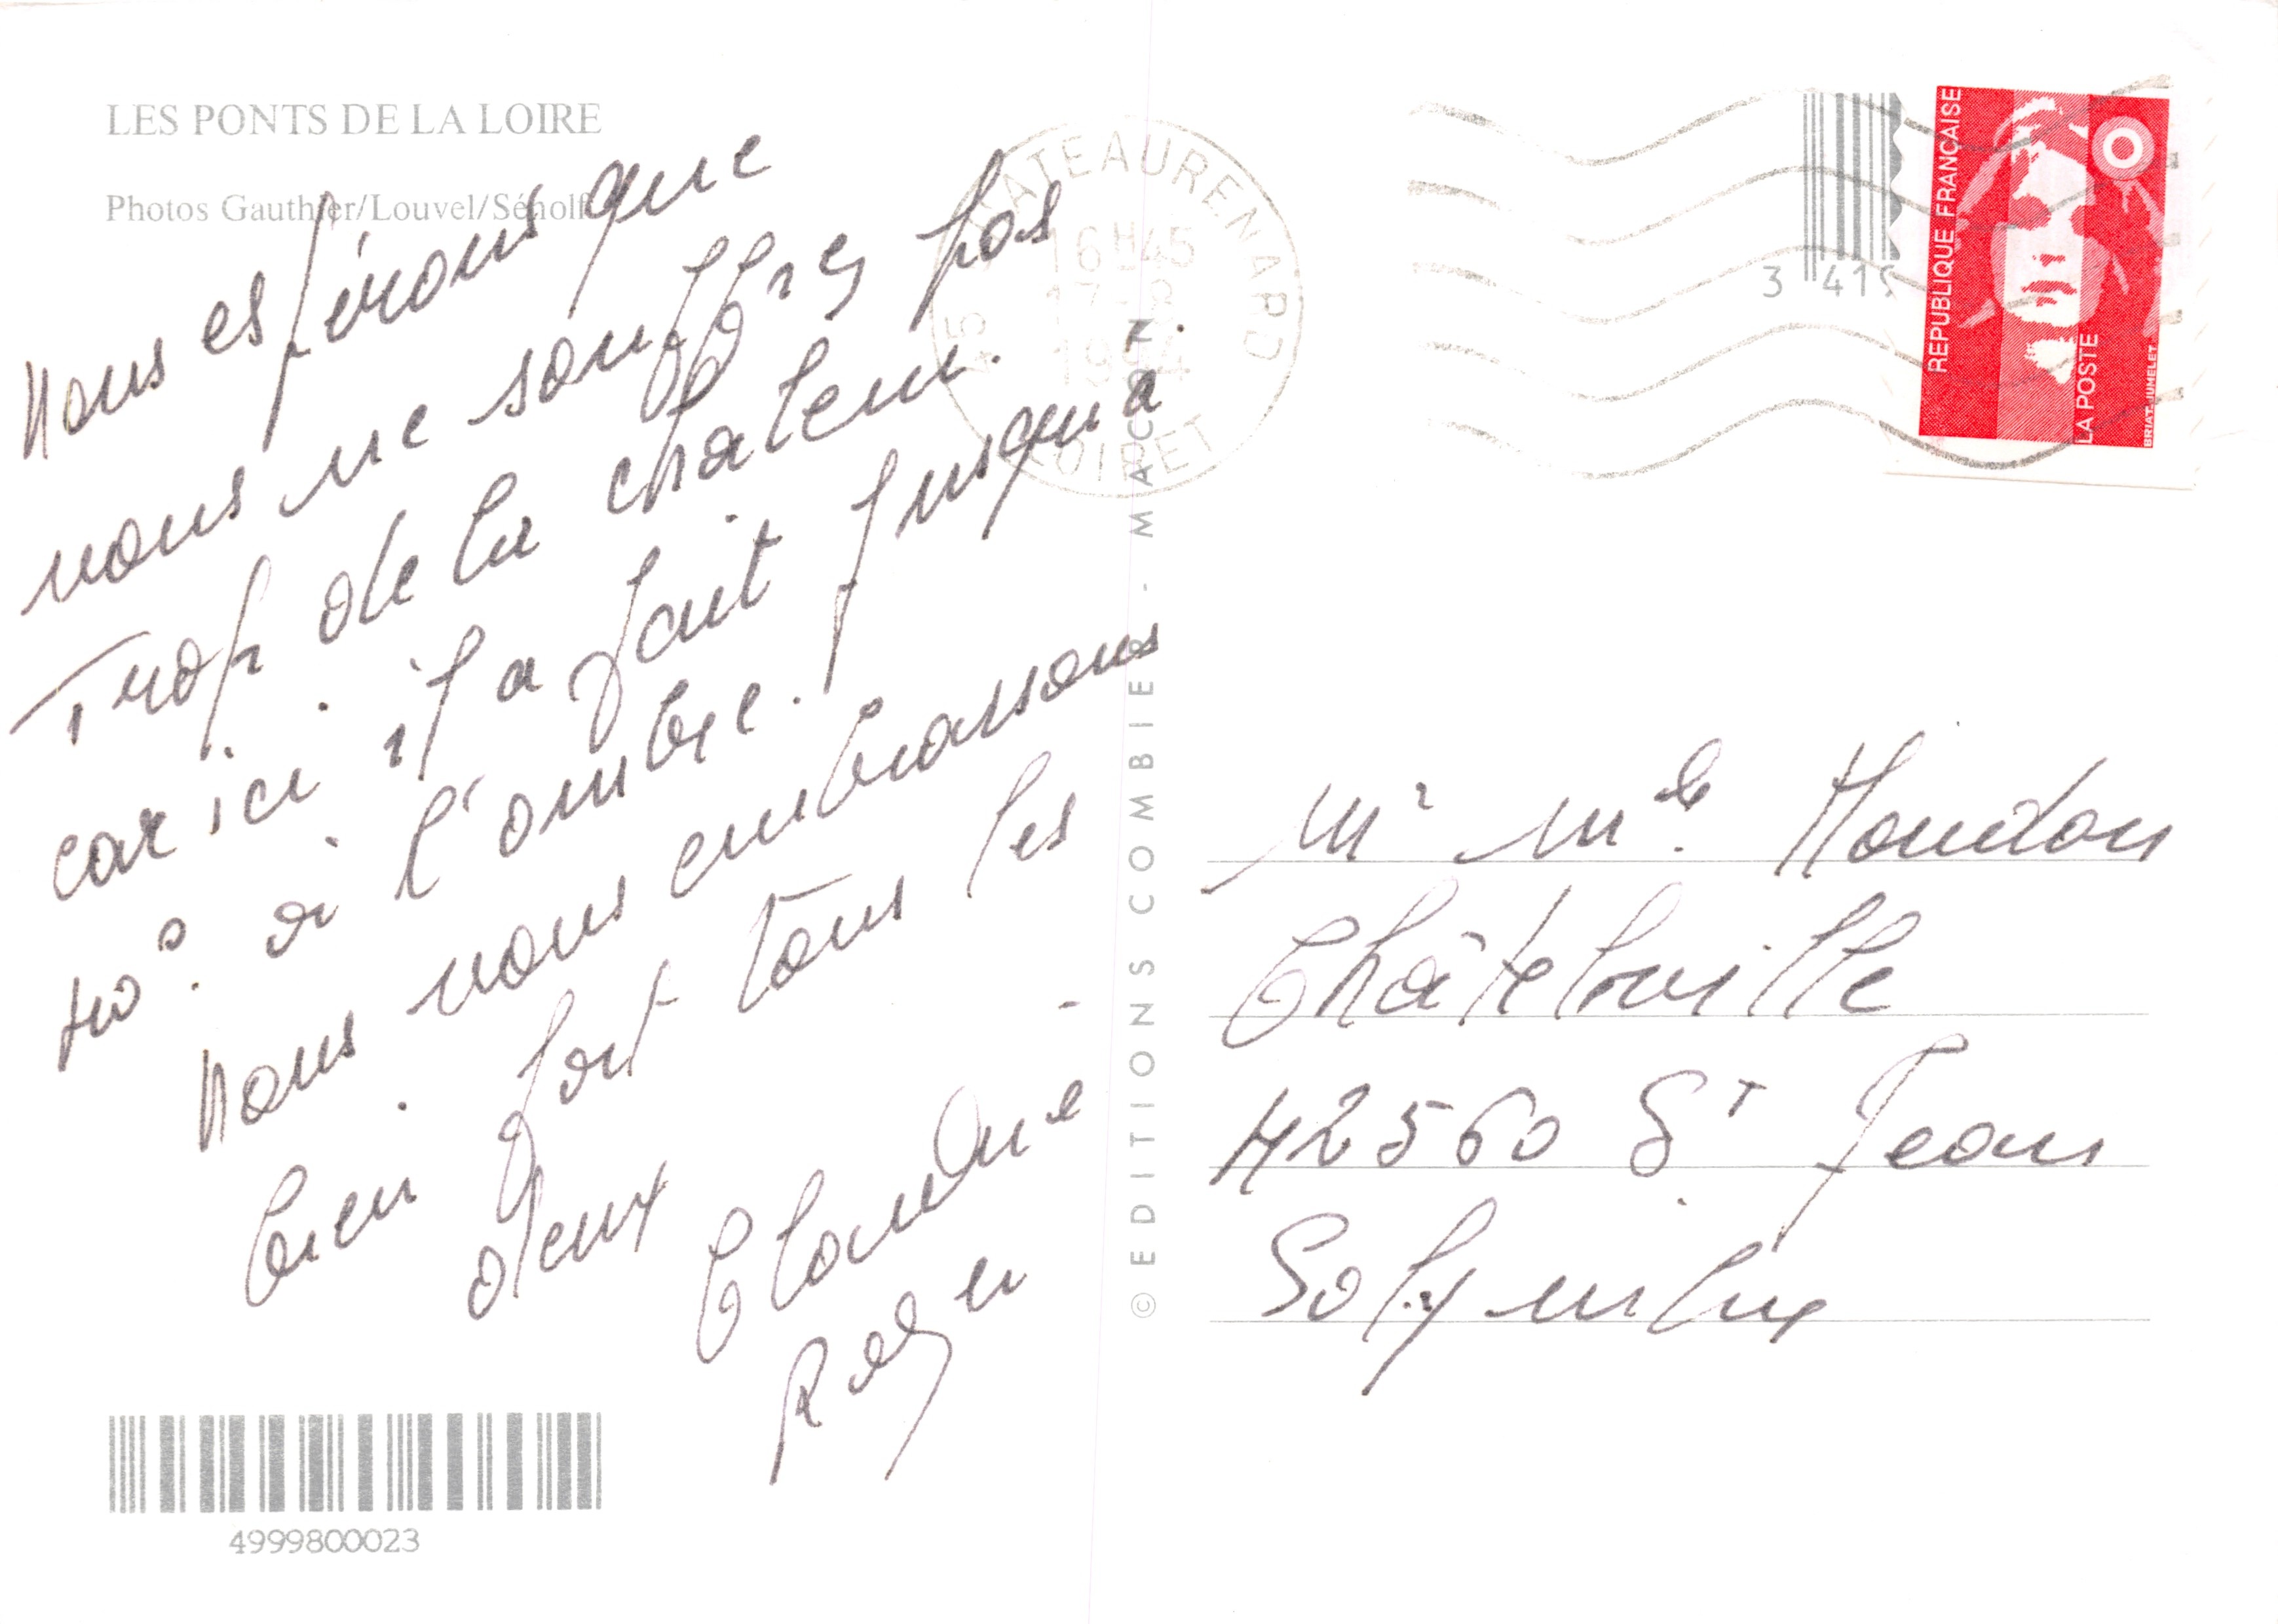 LES PONTS DE LA LOIRE
Photos Gauthier/Louvel/Sénolf
Nous espérons que
vous ne souffres pas
Trop de la chaleur.
car ici il a fait jusqu'a
40°. à l'ombre.
Nous vous embrassons
bien fort tous les
deux
Claudine
Roger
4999800023
© EDITIONS COMBIER - MACON
CHATEAURENARD
16H45
17-8
1994
45
LOIRET
3 419
REPUBLIQUE FRANÇAISE
LA POSTE
BRIAT-JUMELET
Mr Me. Moudon
Châtelville
42560 St Jean
Solymieux